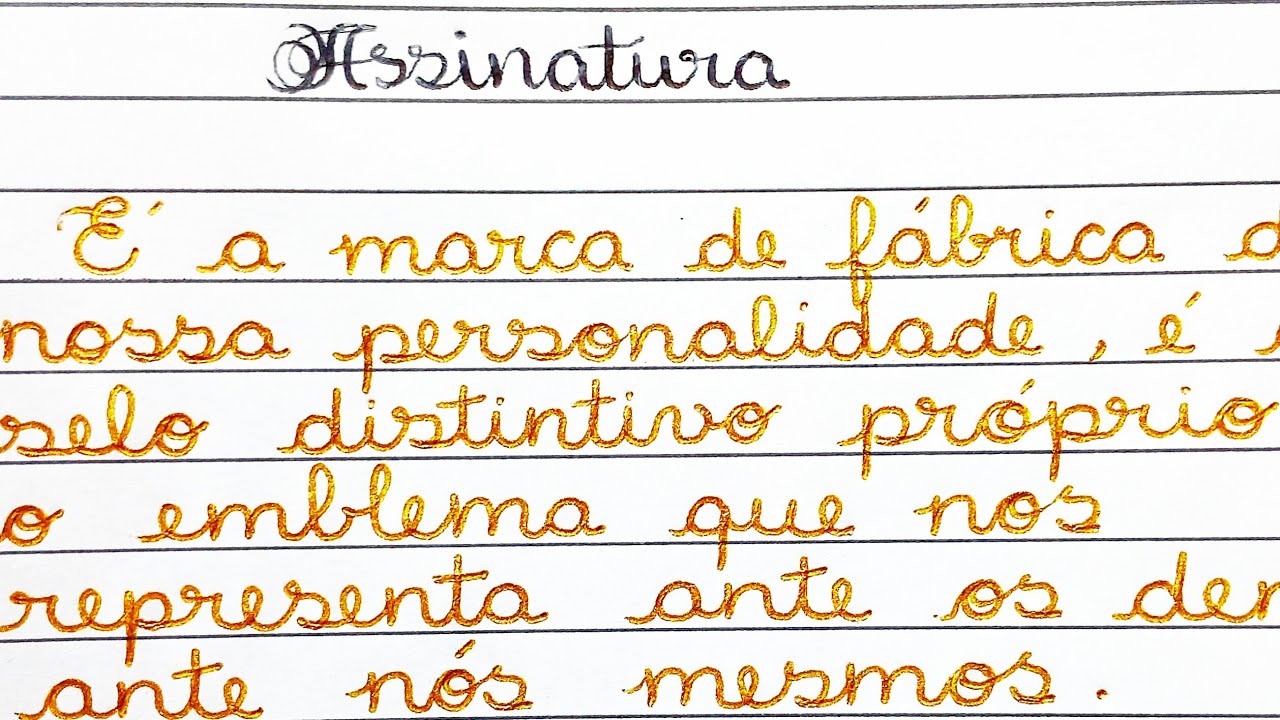 Assinatura
É a marca de fábrica d
nossa personalidade, é
selo distintivo próprio
o emblema que nos
representa ante os
ante nós mesmos.